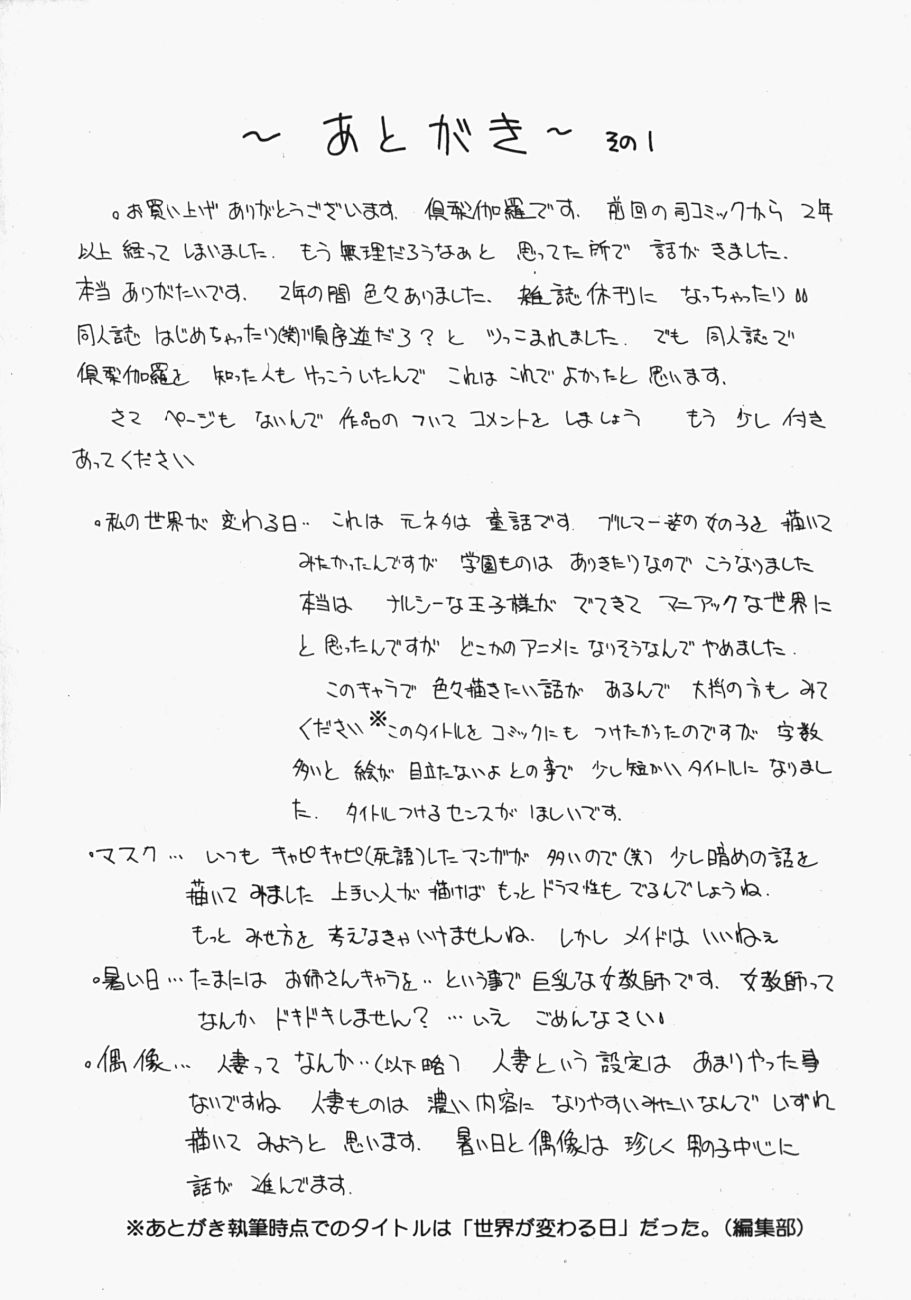 ～ あとがき～ その1
。お買い上げ ありがとうございます、倶梨伽羅です、前回の司コミックから 2年
以上 経って しまいました. もう 無理だろうなぁと 思ってた所で 話が きました.
本当 ありがたいです. 2年の間 色々ありました、雑誌休刊に なっちゃったり
同人誌 はじめちゃったり(笑)順序逆だろ?と ツっこまれました. でも 同人誌で
倶梨伽羅を 知った人も けっこういたんで これは これで よかったと 思います.
さて ページも ないんで 作品の ついて コメントを しましょう もう 少し 付き
あってください
。私の世界が 変わる日‥ これは 元ネタは 童話です. ブルマー姿の 女の子を 描いて
みたかったんですが 学園ものは ありきたりなので こうなりました
本当は ナルシーな王子様が でてきて マニアックな世界に
と 思ったんですが どこかの アニメに なりそうなんで やめました.
このキャラで 色々描きたい話が あるんで 大判の方も みて
ください※このタイトルを コミックにも つけたかったのですが 字数
多いと 絵が 目立たないよ との事で 少し短かい タイトルに なりまし
た. タイトルつけるセンスが ほしいです.
・マスク… いつも キャピキャピ(死語)したマンガが 多いので(笑) 少し暗めの話を
描いて みました 上手い人が 描けば もっと ドラマ性も でるんでしょうね.
もっと みせ方を 考えなきゃ いけませんね. しかし メイドは いいねぇ
。暑い日… たまには お姉さんキャラを‥ という事で 巨乳な女教師です. 女教師って
なんか ドキドキしません? …いえ ごめんなさい
。偶像… 人妻って なんか‥(以下略) 人妻という 設定は あまりやった事
ないですね 人妻ものは 濃い内容に なりやすいみたいなんで いずれ
描いて みようと 思います. 暑い日と 偶像は 珍しく 男の子中心に
話が 進んでます.
※あとがき執筆時点でのタイトルは「世界が変わる日」だった。（編集部）